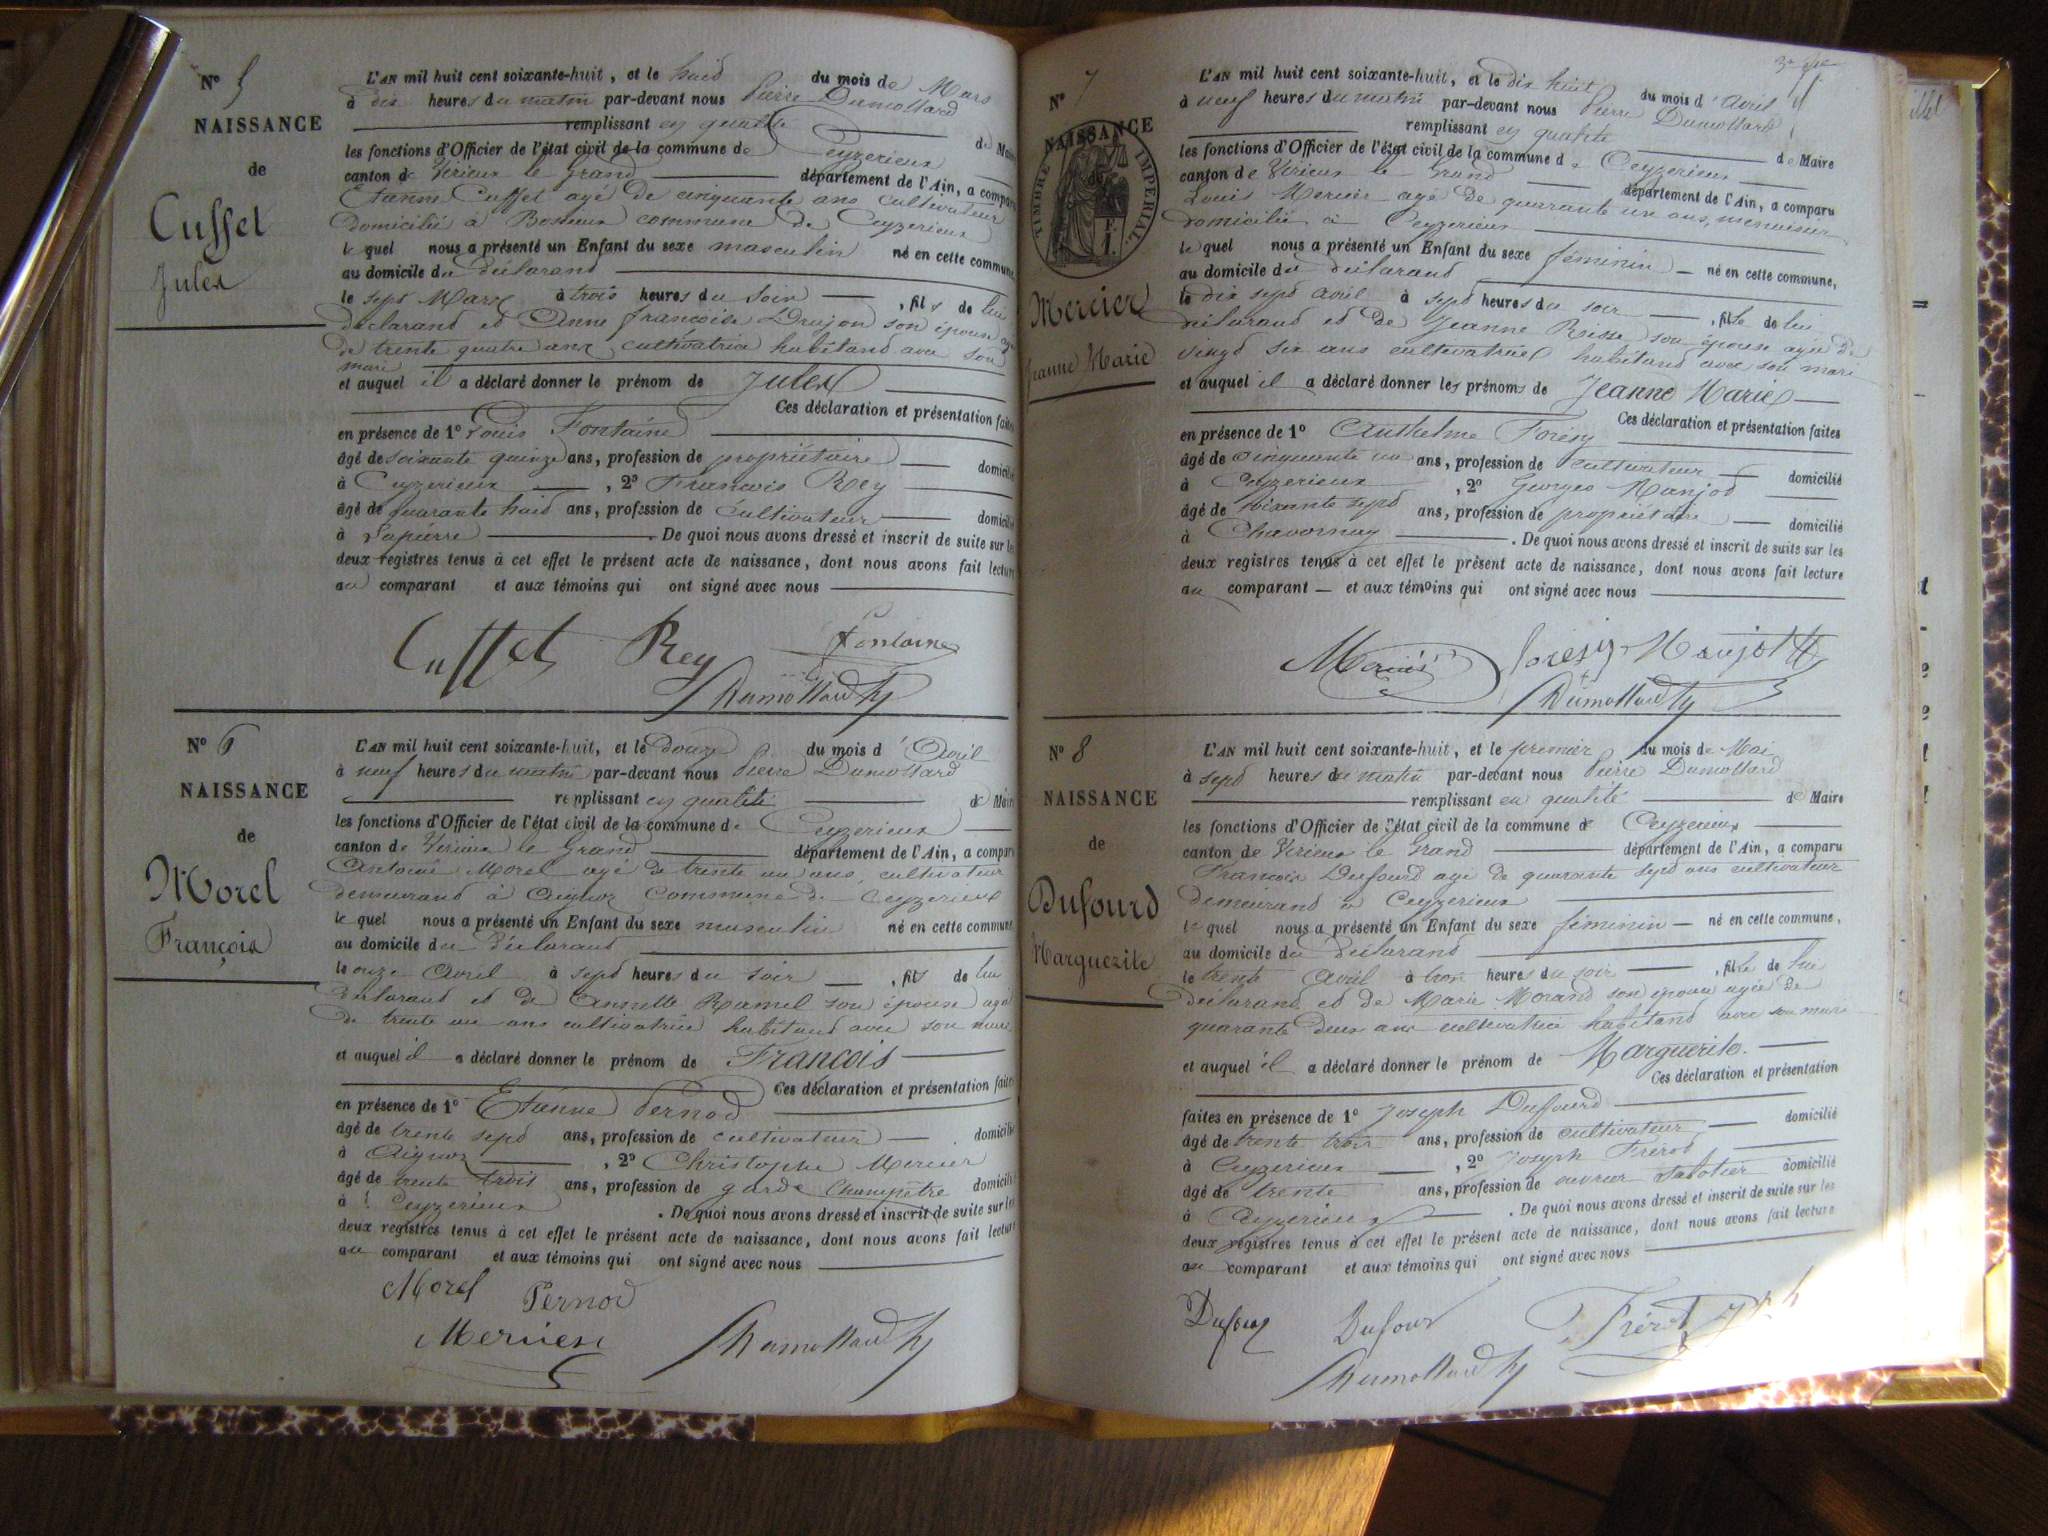 N° 5
NAISSANCE
de
Cusset
Jules
L'AN mil huit cent soixante-huit, et le huit du mois de Mars
à dix heures du matin par-devant nous Pierre Dumollard
remplissant en qualité de Maire
les fonctions d'Officier de l'état civil de la commune de Ceyzerieux
canton de Virieux le Grand département de l'Ain, a comparu
Etienne Cusset agé de cinquante ans cultivateur
domicilié à commune de Ceyzerieux
lequel nous a présenté un Enfant du sexe masculin né en cette commune,
au domicile du déclarant
le sept Mars à trois heures du soir, fils de lui
déclarant et Anne françoise Drujon son épouse agée
de trente quatre ans cultivatrice habitant avec son
mari
et auquel il a déclaré donner le prénom de Jules
Ces déclaration et présentation faites
en présence de 1° Louis Fontaine
âgé de soixante quinze ans, profession de propriétaire domicilié
à Ceyzerieux, 2° Francois Rey
âgé de quarante huit ans, profession de cultivateur domicilié
à Lapierre. De quoi nous avons dressé et inscrit de suite sur les
deux registres tenus à cet effet le présent acte de naissance, dont nous avons fait lecture
au comparant et aux témoins qui ont signé avec nous
Cusset Rey Fontaine
Dumollard
N° 6
NAISSANCE
de
Morel
François
L'AN mil huit cent soixante-huit, et le douze du mois d'Avril
à neuf heures du matin par-devant nous Pierre Dumollard
remplissant en qualité de Maire
les fonctions d'Officier de l'état civil de la commune de Ceyzerieux
canton de Virieux le Grand département de l'Ain, a comparu
Antoine Morel agé de trente un ans, cultivateur
demeurant à Aignoz Commune de Ceyzerieux
lequel nous a présenté un Enfant du sexe masculin né en cette commune
au domicile du déclarant
le onze Avril à sept heures du soir, fils de lui
déclarant et de Annette Ramel son épouse agée
de trente un ans cultivatrice habitant avec son mari
et auquel il a déclaré donner le prénom de François
Ces déclaration et présentation faites
en présence de 1° Etienne Pernod
âgé de trente sept ans, profession de cultivateur domicilié
à Aignoz, 2° Christophe Mercier
âgé de trente trois ans, profession de garde Champêtre domicilié
à Ceyzerieux. De quoi nous avons dressé et inscrit de suite sur les
deux registres tenus à cet effet le présent acte de naissance, dont nous avons fait lecture
au comparant et aux témoins qui ont signé avec nous
Morel Pernod
Mercier Dumollard
N° 7
NAISSANCE
de
TIMBRE IMPERIAL.
1 F.
Mercier
Jeanne Marie
L'AN mil huit cent soixante-huit, et le dix huit du mois d'Avril
à neuf heures du matin par-devant nous Pierre Dumollard
remplissant en qualité de Maire
les fonctions d'Officier de l'état civil de la commune de Ceyzerieux
canton de Virieux le Grand département de l'Ain, a comparu
Louis Mercier agé de quarante un ans, menuisier
domicilié à Ceyzerieux
lequel nous a présenté un Enfant du sexe féminin né en cette commune,
au domicile du déclarant
le dix sept avril à sept heures du soir, fille de lui
déclarant et de Jeanne Reisse son épouse agée de
vingt six ans cultivatrice habitant avec son mari
et auquel il a déclaré donner les prénoms de Jeanne Marie
Ces déclaration et présentation faites
en présence de 1° Anthelme Forésy
âgé de cinquante un ans, profession de cultivateur domicilié
à Ceyzerieux, 2° Georges Manjot
âgé de soixante sept ans, profession de propriétaire domicilié
à Chavornay. De quoi nous avons dressé et inscrit de suite sur les
deux registres tenus à cet effet le présent acte de naissance, dont nous avons fait lecture
au comparant et aux témoins qui ont signé avec nous
Mercier Forésy Manjot
Dumollard
N° 8
NAISSANCE
de
Dufourd
Marguerite
L'AN mil huit cent soixante-huit, et le premier du mois de Mai
à sept heures du matin par-devant nous Pierre Dumollard
remplissant en qualité de Maire
les fonctions d'Officier de l'état civil de la commune de Ceyzerieux
canton de Virieux le Grand département de l'Ain, a comparu
François Dufourd agé de quarante sept ans cultivateur
demeurant à Ceyzerieux
lequel nous a présenté un Enfant du sexe féminin né en cette commune,
au domicile du déclarant
le trente Avril à trois heures du soir, fille de lui
déclarant et de Marie Morand son épouse agée de
quarante deux ans cultivatrice habitant avec son mari
et auquel il a déclaré donner le prénom de Marguerite.
Ces déclaration et présentation
faites en présence de 1° Joseph Duffourd
âgé de trente trois ans, profession de cultivateur domicilié
à Ceyzerieux, 2° Joseph Frérot
âgé de trente ans, profession de ouvrier sabotier domicilié
à Ceyzerieux. De quoi nous avons dressé et inscrit de suite sur les
deux registres tenus à cet effet le présent acte de naissance, dont nous avons fait lecture
au comparant et aux témoins qui ont signé avec nous
Dufour Dufour Frérot Jph
Dumollard